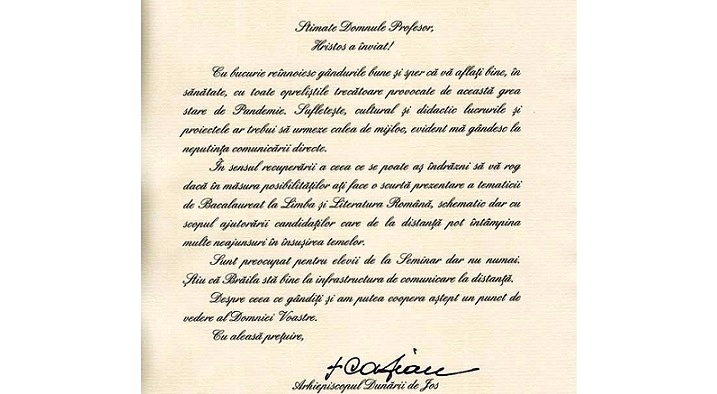 Stimate Domnule Profesor,
Hristos a înviat!
Cu bucurie reînnoiesc gândurile bune și sper că vă aflați bine, în
sănătate, cu toate opreliștile trecătoare provocate de această grea
stare de Pandemie. Sufletește, cultural și didactic lucrurile și
proiectele ar trebui să urmeze calea de mijloc, evident mă gândesc la
neputința comunicării directe.
În sensul recuperării a ceea ce se poate aș îndrăzni să vă rog
dacă în măsura posibilităților ați face o scurtă prezentare a tematicii
de Bacalaureat la Limba și Literatura Română, schematic dar cu
scopul ajutorării candidaților care de la distanță pot întâmpina
multe neajunsuri în însușirea temelor.
Sunt preocupat pentru elevii de la Seminar dar nu numai.
Știu că Brăila stă bine la infrastructura de comunicare la distanță.
Despre ceea ce gândiți și am putea coopera aștept un punct de
vedere al Domniei Voastre.
Cu aleasă prețuire,
+ Casian
Arhiepiscopul Dunării de Jos